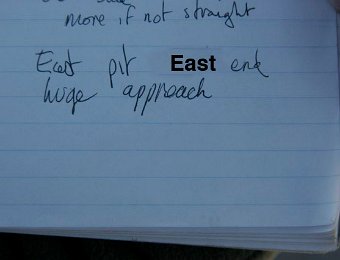 more if not straight
East pit East end
huge approach